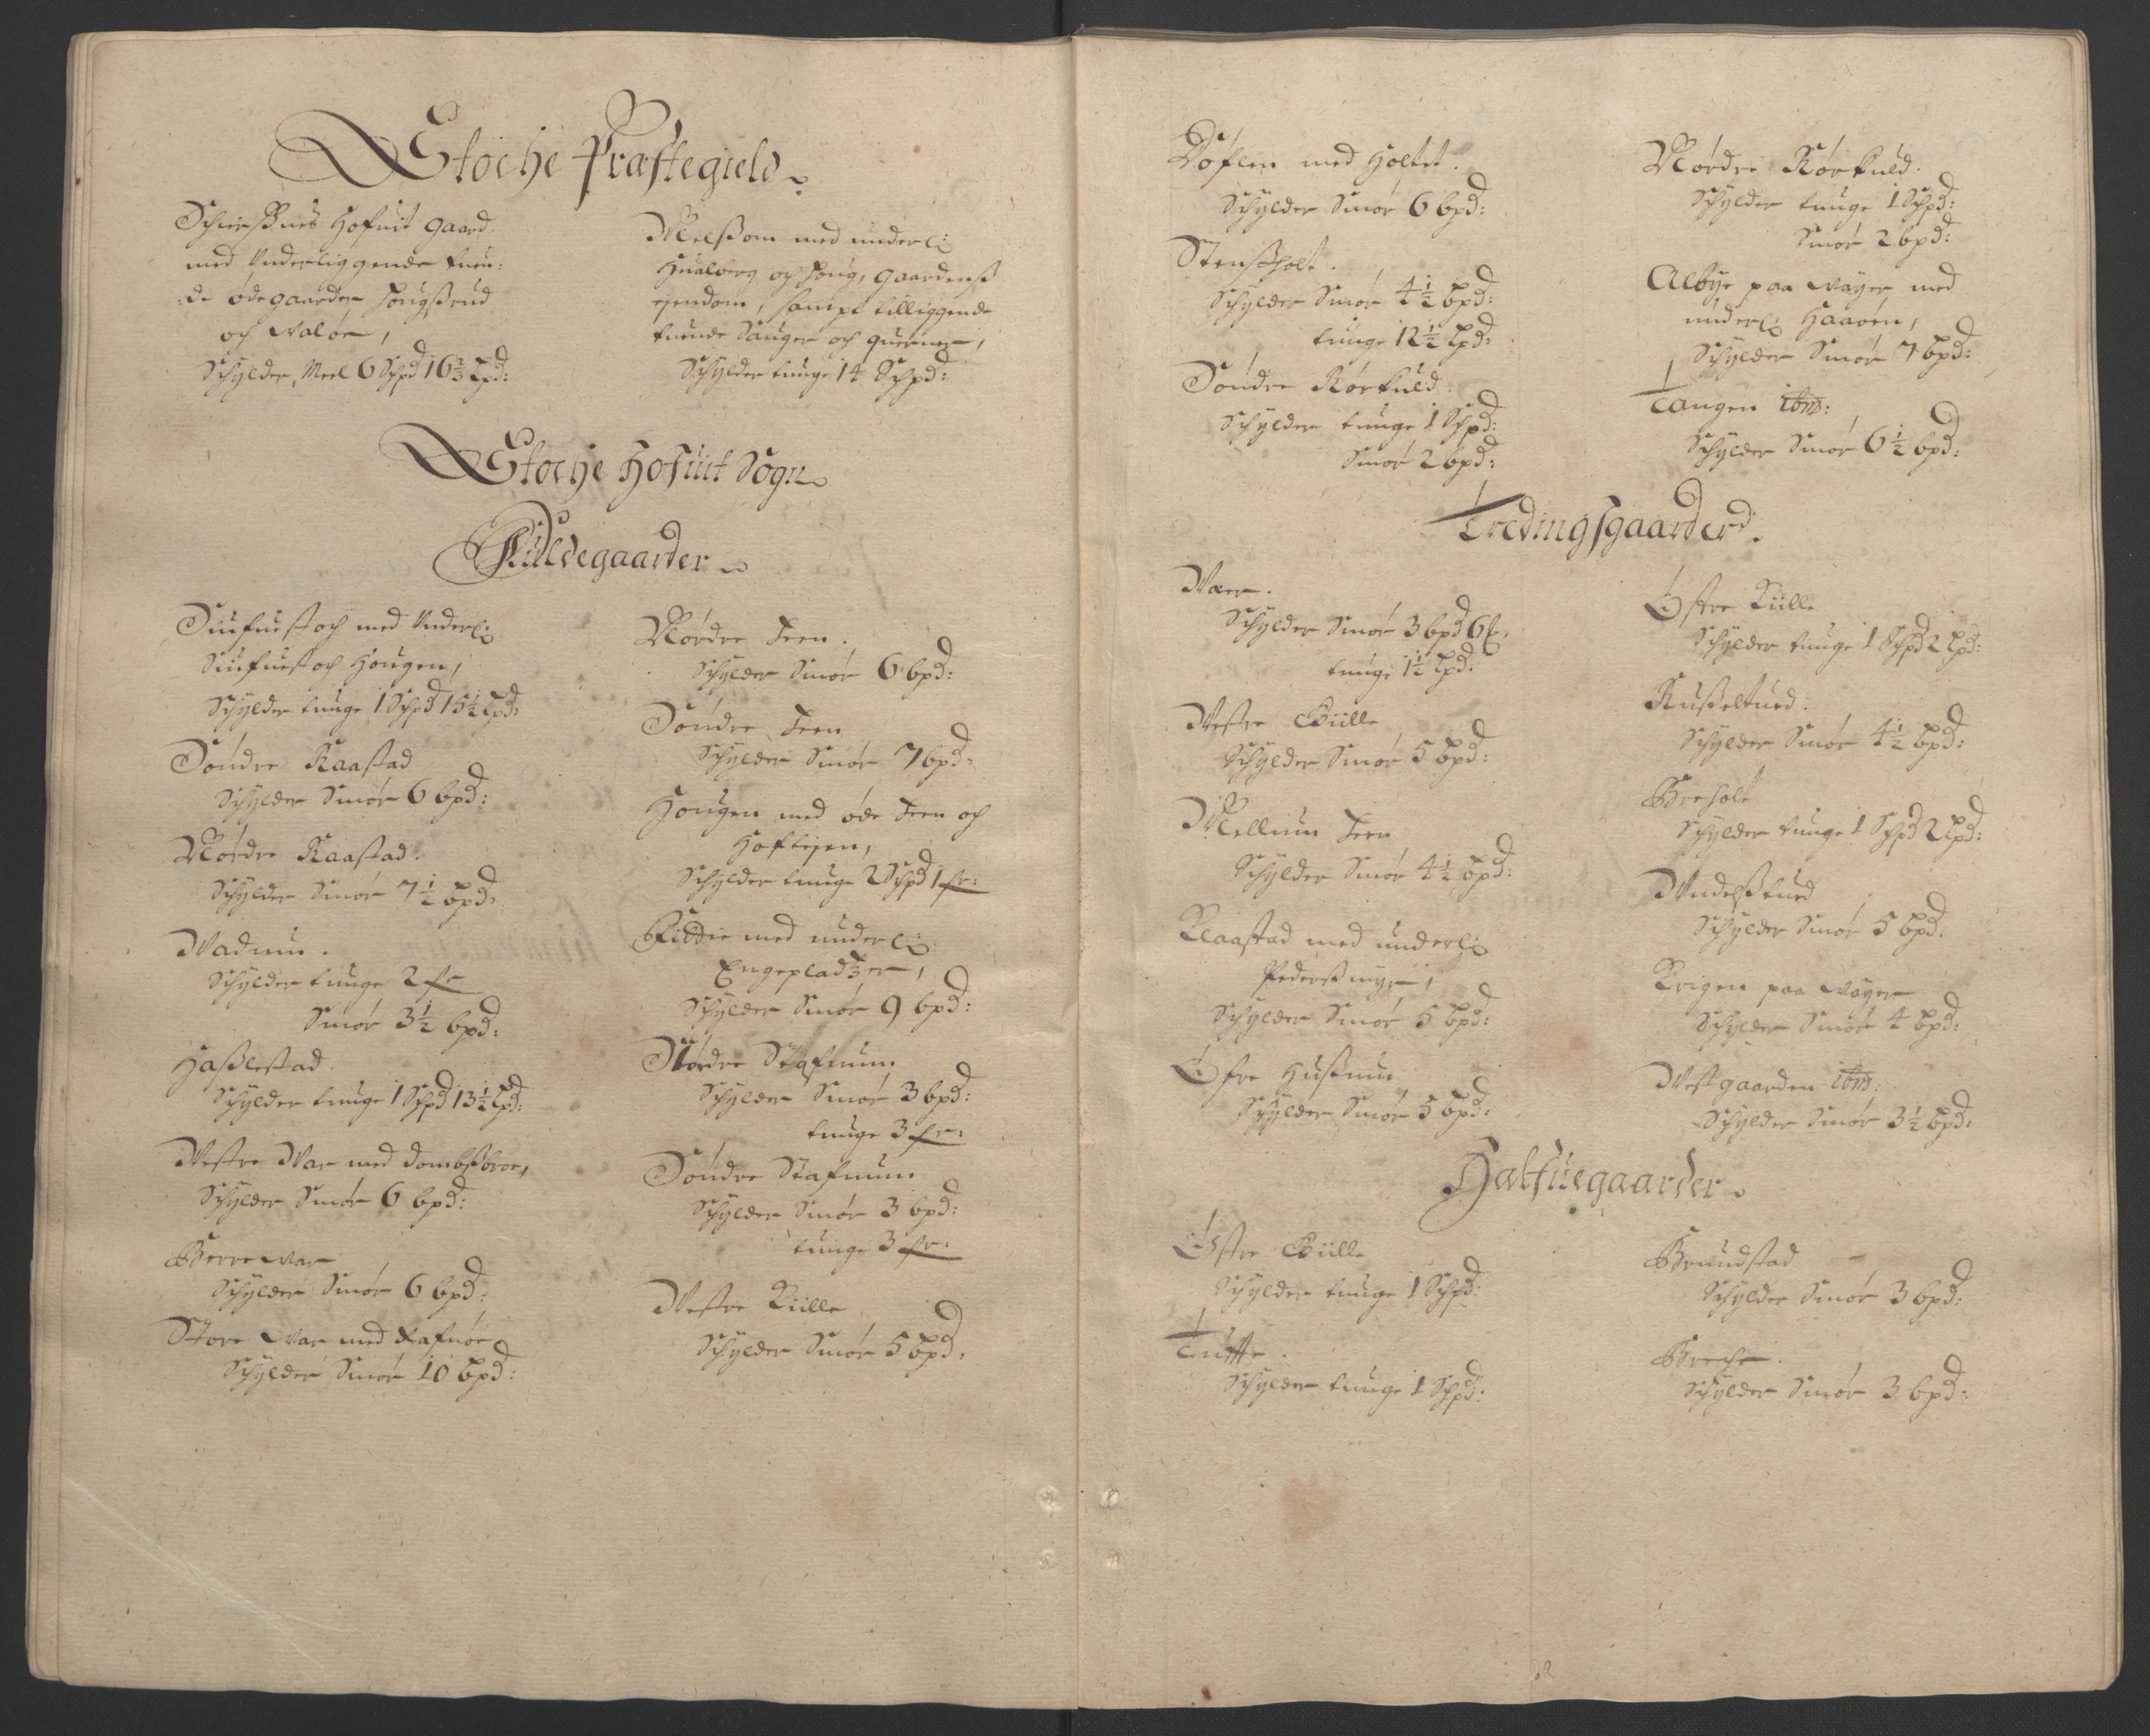 Stoche Præstegield
Schierßnes Hofuit gaard
med Underliggende tuen:
de ødegaarder Hougßrud
och Waløe,
Schylder Meel 6 Schpd 16 2/3 Lpd:
Melßom med underl:
Hualberg og Houg, gaardenß
ejendom, sampt tilliggende
tuende Sauger och querner,
Schylder tunge 14 Schpd:
Stoche Hofuit Sogn
Fuldegaarder
Siufuestoch med Underl:
Siufuestoch Hougen,
Schylder tunge 1 Schpd 15 1/2 Lpd:
Søndre Raastad
Schylder Smør 6 bpd:
Nordre Raastad.
Schylder Smør 7 1/2 bpd:
Wadum.
Schylder tunge 2 fr
Smør 3 1/2 bpd:
Haßlestad.
Schylder tunge 1 Schpd 13 1/2 Lpd:
Westre War med Dombßbroe,
Schylder Smør 6 bpd:
Berre War
Schylder Smør 6 bpd:
Store War med Rafnøe
Schylder Smør 10 bpd:
Nordre Feen.
Schylder Smør 6 bpd:
Søndre Feen
Schylder Smør 7 bpd:
Hougen med øde Feen och
Hoftejen,
Schylder tunge 2 Schpd 1 fr:
Fiddie med underl:
Engepladtzer,
Schylder Smør 9 bpd:
Nordre Stafnum
Schylder Smør 3 bpd:
tunge 3 fr:
Søndre Stafnum
Schylder Smør 3 bpd:
tunge 3 fr:
Westre Riille
Schylder Smør 5 bpd:
Døflen med Holtet.
Schylder Smør 6 bpd:
Stenßholt.
Schylder Smør 4 1/2 bpd:
tunge 12 1/2 Lpd:
Søndre Rørkuld.
Schylder tunge 1 Schpd:
Smør 2 bpd:
Nordre Rørkuld.
Schylder tunge 1 Schpd:
Smør 2 bpd:
Albye paa Wäyer med
underl: Haaøen,
Schylder Smør 7 bpd:
Tangen ibm:
Schylder Smør 6 1/2 bpd:
Tredingsgaarder.
Wær.
Schylder Smør 3 bpd 6
tunge 1 1/2 Lpd:
Westre Biille
Schylder Smør 5 bpd:
Mellium Feen
Schylder Smør 4 1/2 bpd:
Klaastad med underl:
Pederßmyr,
Schylder Smør 5 bpd:
Øfre Hußum
Schylder Smør 5 bpd:
Østre Riille
Schylder tunge 1 Schpd 2 Lpd:
Rußeltued.
Schylder Smør 4 1/2 bpd:
Breholt
Schylder tunge 1 Schpd 2 Lpd:
Undelßtued
Schylder Smør 5 bpd:
Krigen paa Wäyer
Schylder Smør 4 bpd:
Westgaarden ibm:
Schylder Smør 3 1/2 bpd:
Halfuegaarder
Østre Biille
Schylder tunge 1 Schpd:
Tuffte.
Schylder tunge 1 Schpd:
Brundstad
Schylder Smør 3 bpd:
Breche.
Schylder Smør 3 bpd: